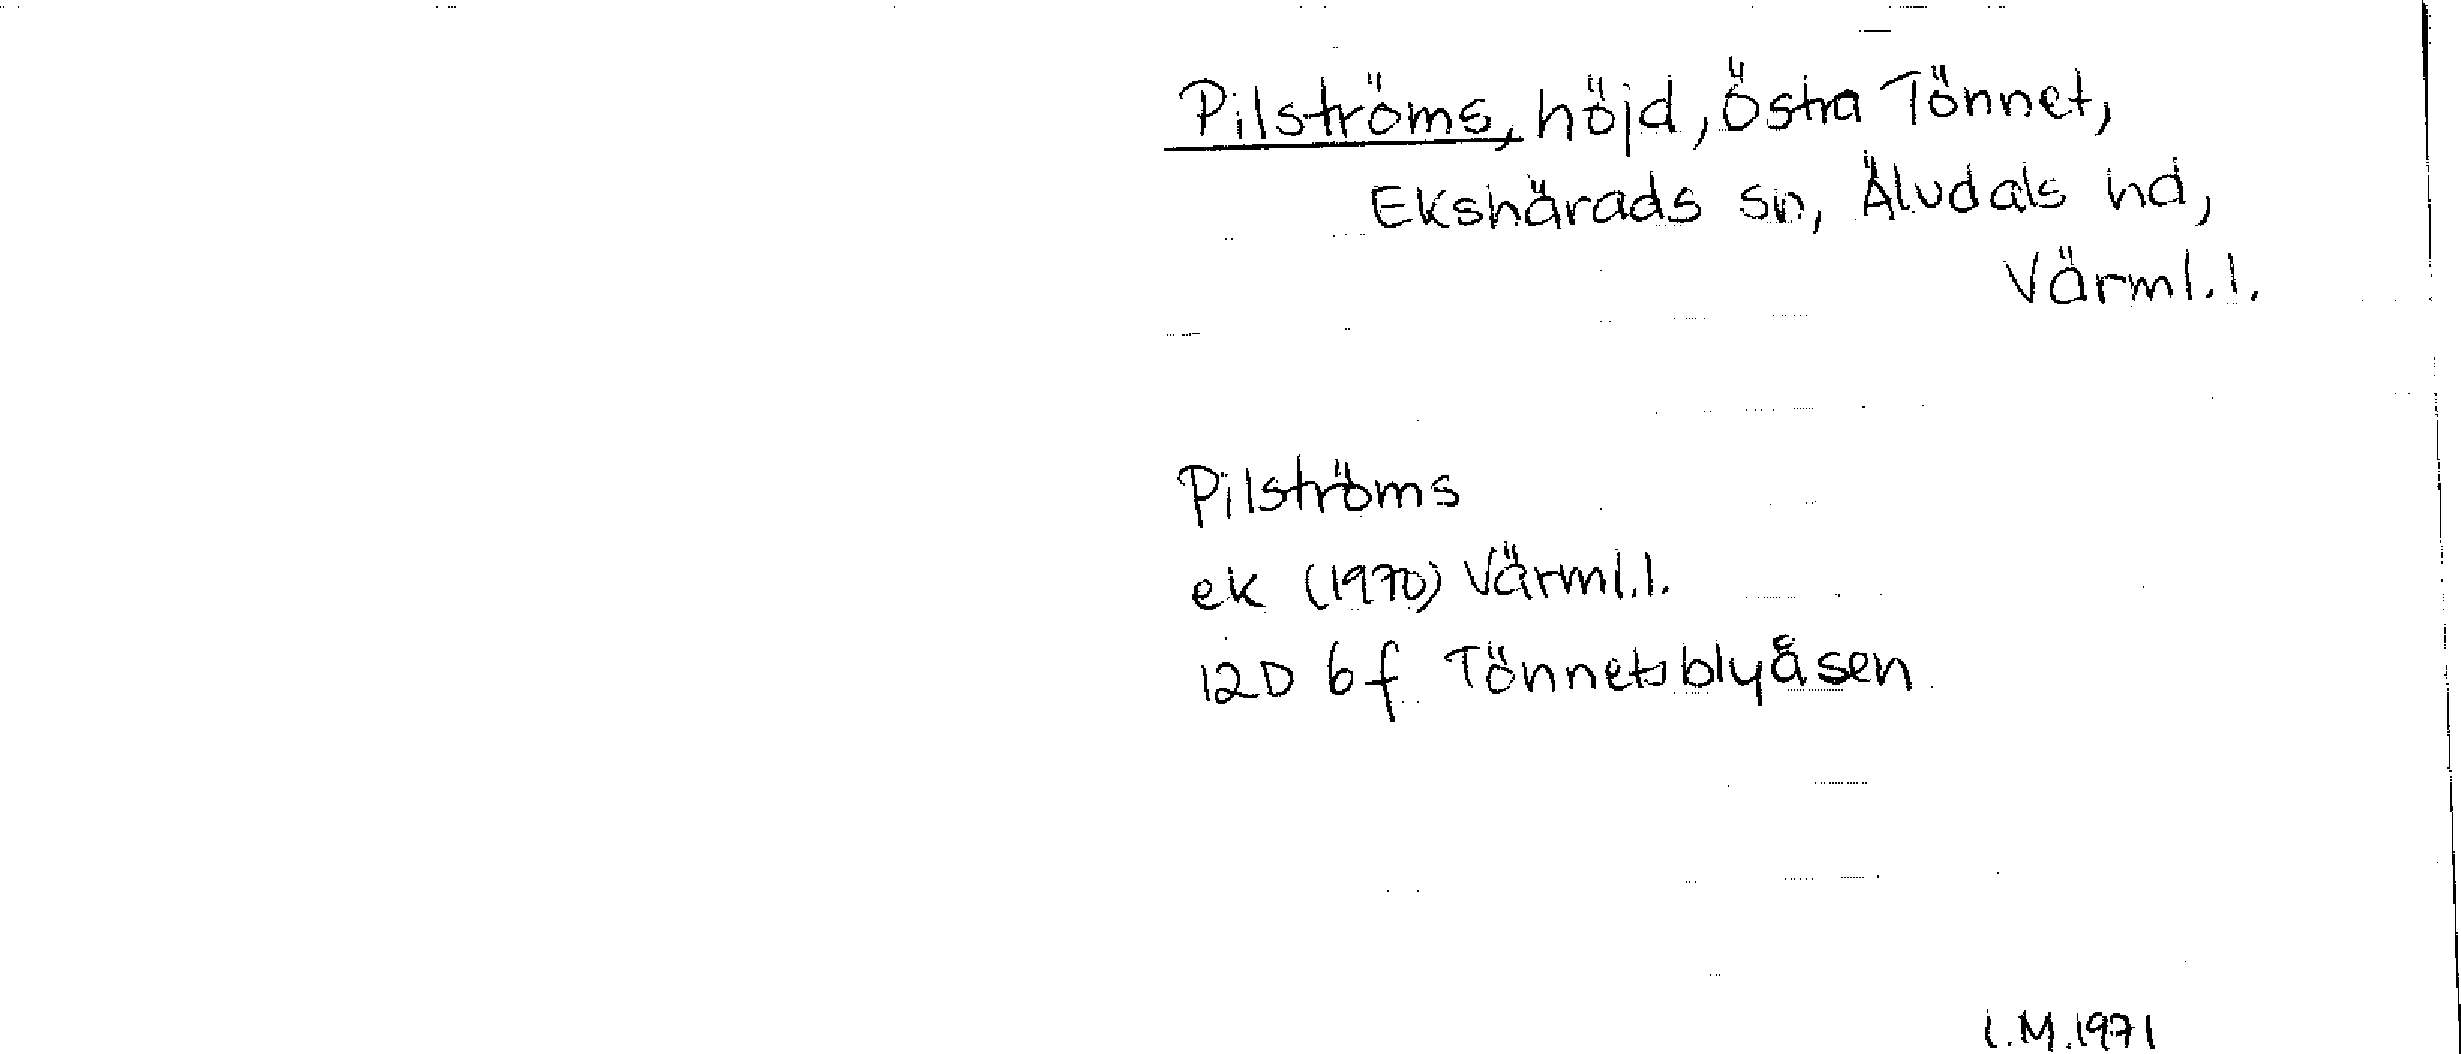 Pilströms, höjd, Östra Tönnet,
Ekshärads sn, Älvdals hd,
Värml.l.
Pilströms
ek (1970) Värml.l.
12D 6f Tönnetsblyåsen
I.M.1971